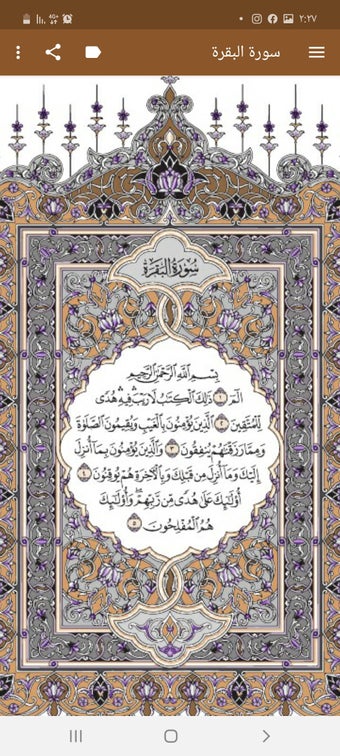 ٢:٢٧
سورة البقرة
سُورَةُ البَقَرَةِ
بِسْمِ اللَّهِ الرَّحْمَٰنِ الرَّحِيمِ
الٓمٓ ١ ذَٰلِكَ الْكِتَٰبُ لَا رَيْبَ ۛ فِيهِ ۛ هُدًى
لِّلْمُتَّقِينَ ٢ الَّذِينَ يُؤْمِنُونَ بِالْغَيْبِ وَيُقِيمُونَ الصَّلَوٰةَ
وَمِمَّا رَزَقْنَٰهُمْ يُنفِقُونَ ٣ وَالَّذِينَ يُؤْمِنُونَ بِمَآ أُنزِلَ
إِلَيْكَ وَمَآ أُنزِلَ مِن قَبْلِكَ وَبِالْآخِرَةِ هُمْ يُوقِنُونَ ٤
أُو۟لَٰٓئِكَ عَلَىٰ هُدًى مِّن رَّبِّهِمْ ۖ وَأُو۟لَٰٓئِكَ
هُمُ الْمُفْلِحُونَ ٥